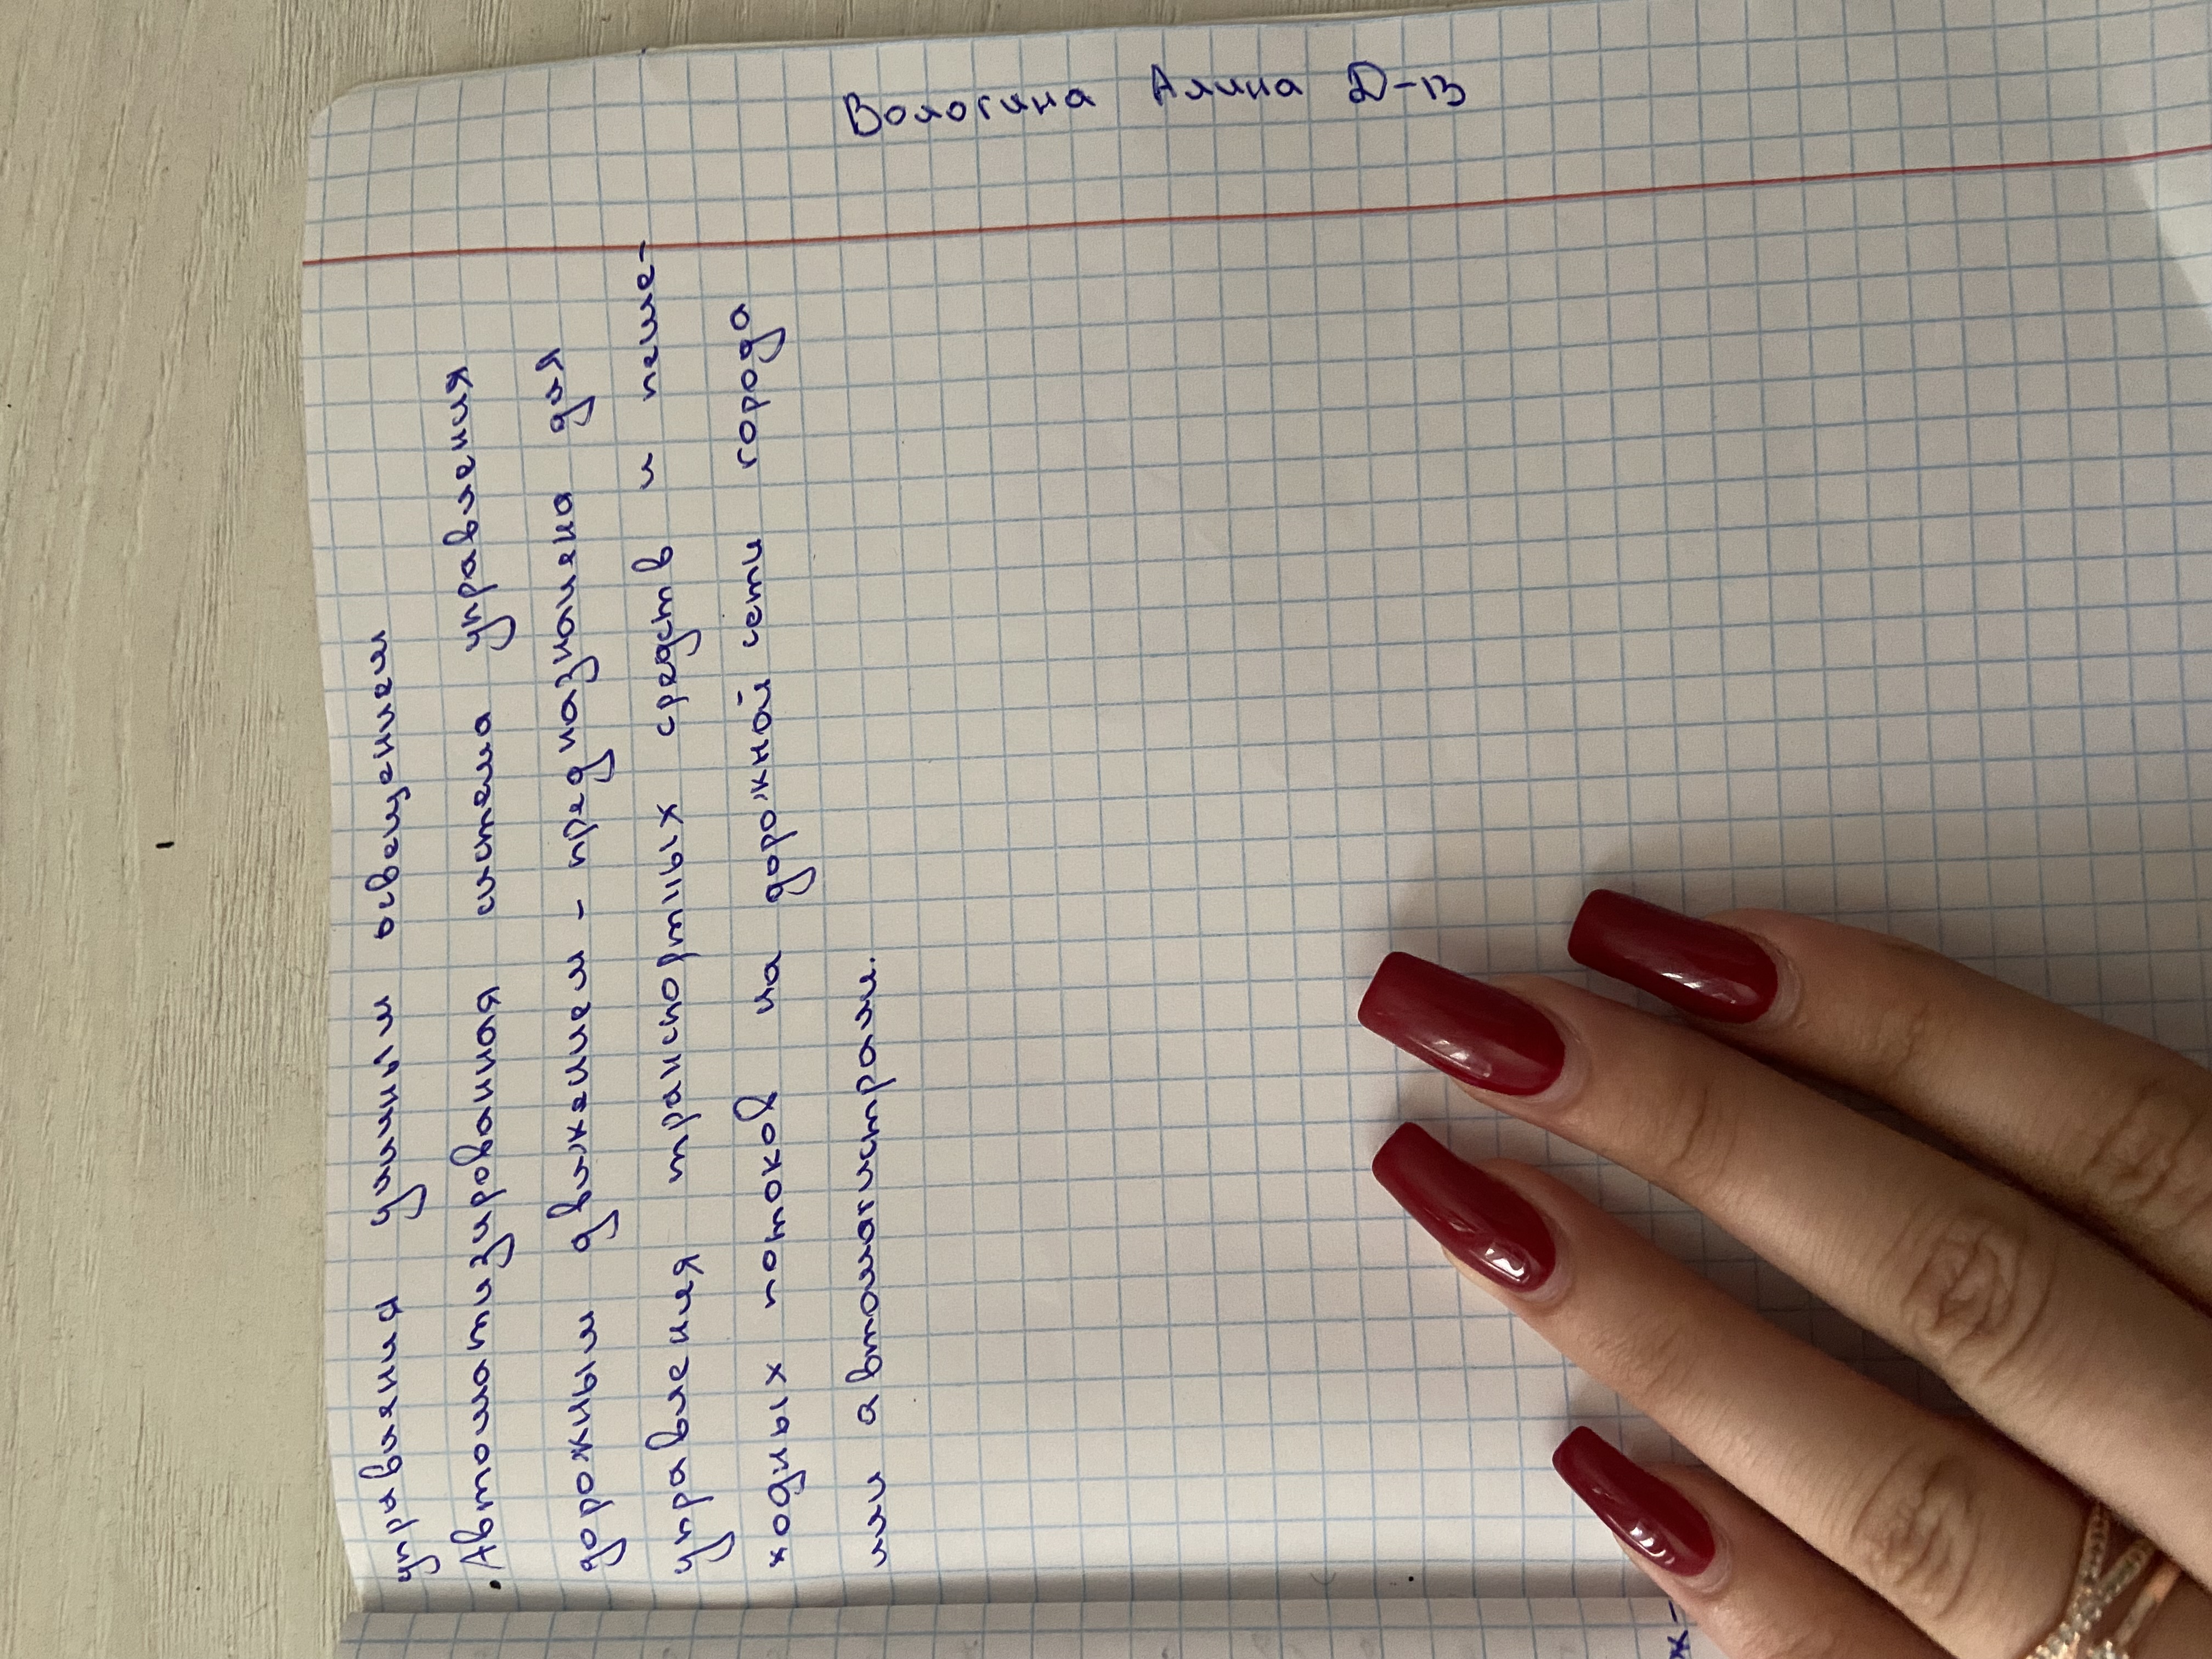 Вологина Алина Д-13
управления умным освещением
• Автоматизированная система управления
дорожным движением - предназначена для
управления транспортных средств и пеше-
ходных потоков на дорожной сети города
или автомагистрали.